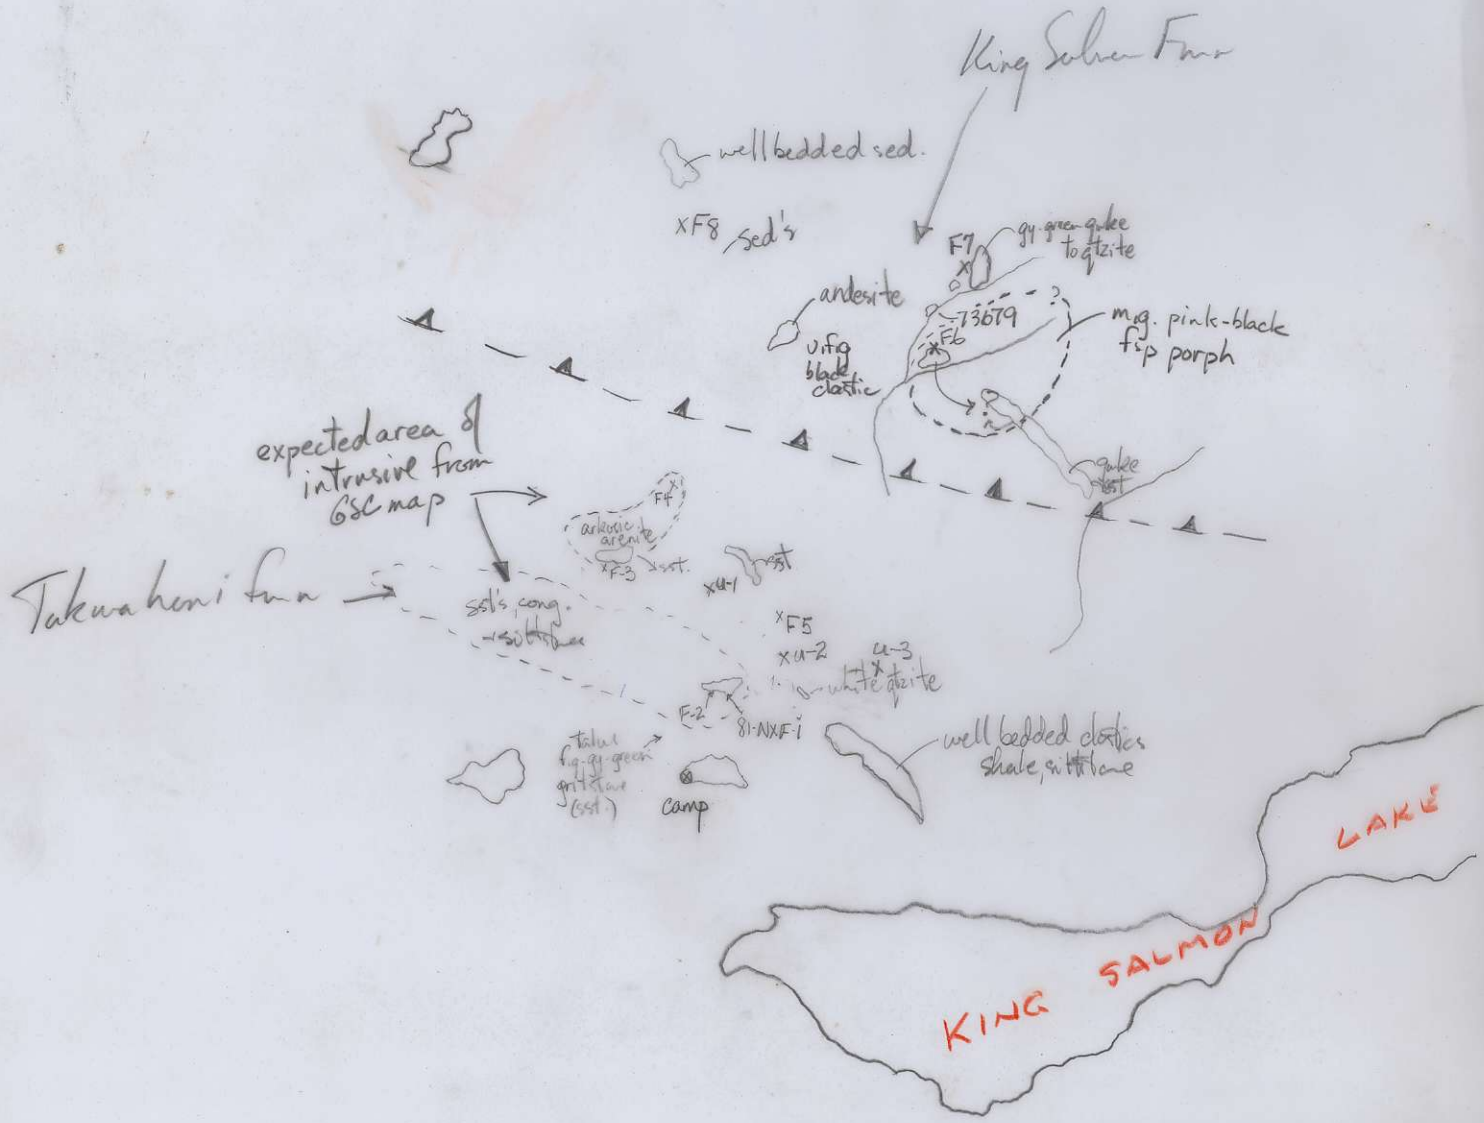 King Salmon Fmn
well bedded sed.
xF8
sed's
F7
x
gy-green gwke
to qtzite
andesite
73679
F6
x
?
m.g. pink-black
fsp porph
v.f.g
black
clastic
?
gwke
sst
expected area of
intrusive from
GSC map
F4
x
arkosic
arenite
xF-3
sst.
sst
xu-1
Takwahoni fmn
sst's, cong.
siltstone
xF5
xu-2
u-3
x
white qtzite
F-2
81-NXF-1
talus
f.g-gy-green
gritstone
(sst.)
camp
well bedded clastics
shale, siltstone
LAKE
KING SALMON